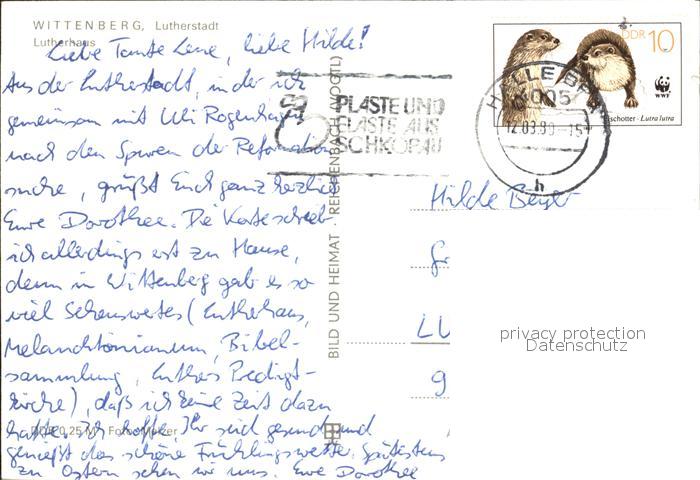 WITTENBERG, Lutherstadt
Lutherhaus
Liebe Tante Lene, liebe Hilde!
Aus der Lutherstadt, in der ich
gemeinsam mit Uli Rogenhagen
nach den Spuren der Reformation
suche, grüßt Euch ganz herzlich
Eure Dorothee. Die Karte schreib
ich allerdings erst zu Hause,
denn in Wittenberg gab es so
viel Sehenswertes (Lutherhaus,
Melanchtonianum, Bibel-
sammlung, Luthers Predigt-
kirche), daß ich keine Zeit dazu
hatte. Ich hoffe, Ihr seid gesund und
genießt das schöne Frühlingswetter. Spätestens
zu Ostern sehen wir uns. Eure Dorothee
0,25 M Foto:
BILD UND HEIMAT · REICHENBACH (VOGTL)
PLASTE UND
ELASTE AUS
SCHKOPAU
HALLE
12.03.88-15
h
DDR 10
WWF
Fischotter - Lutra lutra
Hilde
LU
9
privacy protection
Datenschutz